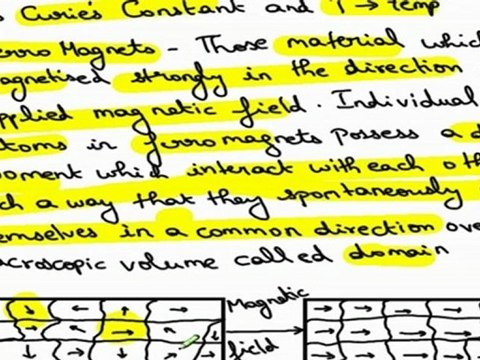 Curie's Constant and T → temp
Ferro Magnets - Those material which
magnetised strongly in the direction
applied magnetic field. Individual
atoms in ferromagnets possess a
moment which interact with each oth
such a way that they spontaneously
themselves in a common direction ove
macroscopic volume called domain
Magnetic
field